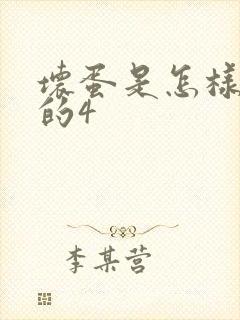 壞蛋是怎樣
的4
李某营